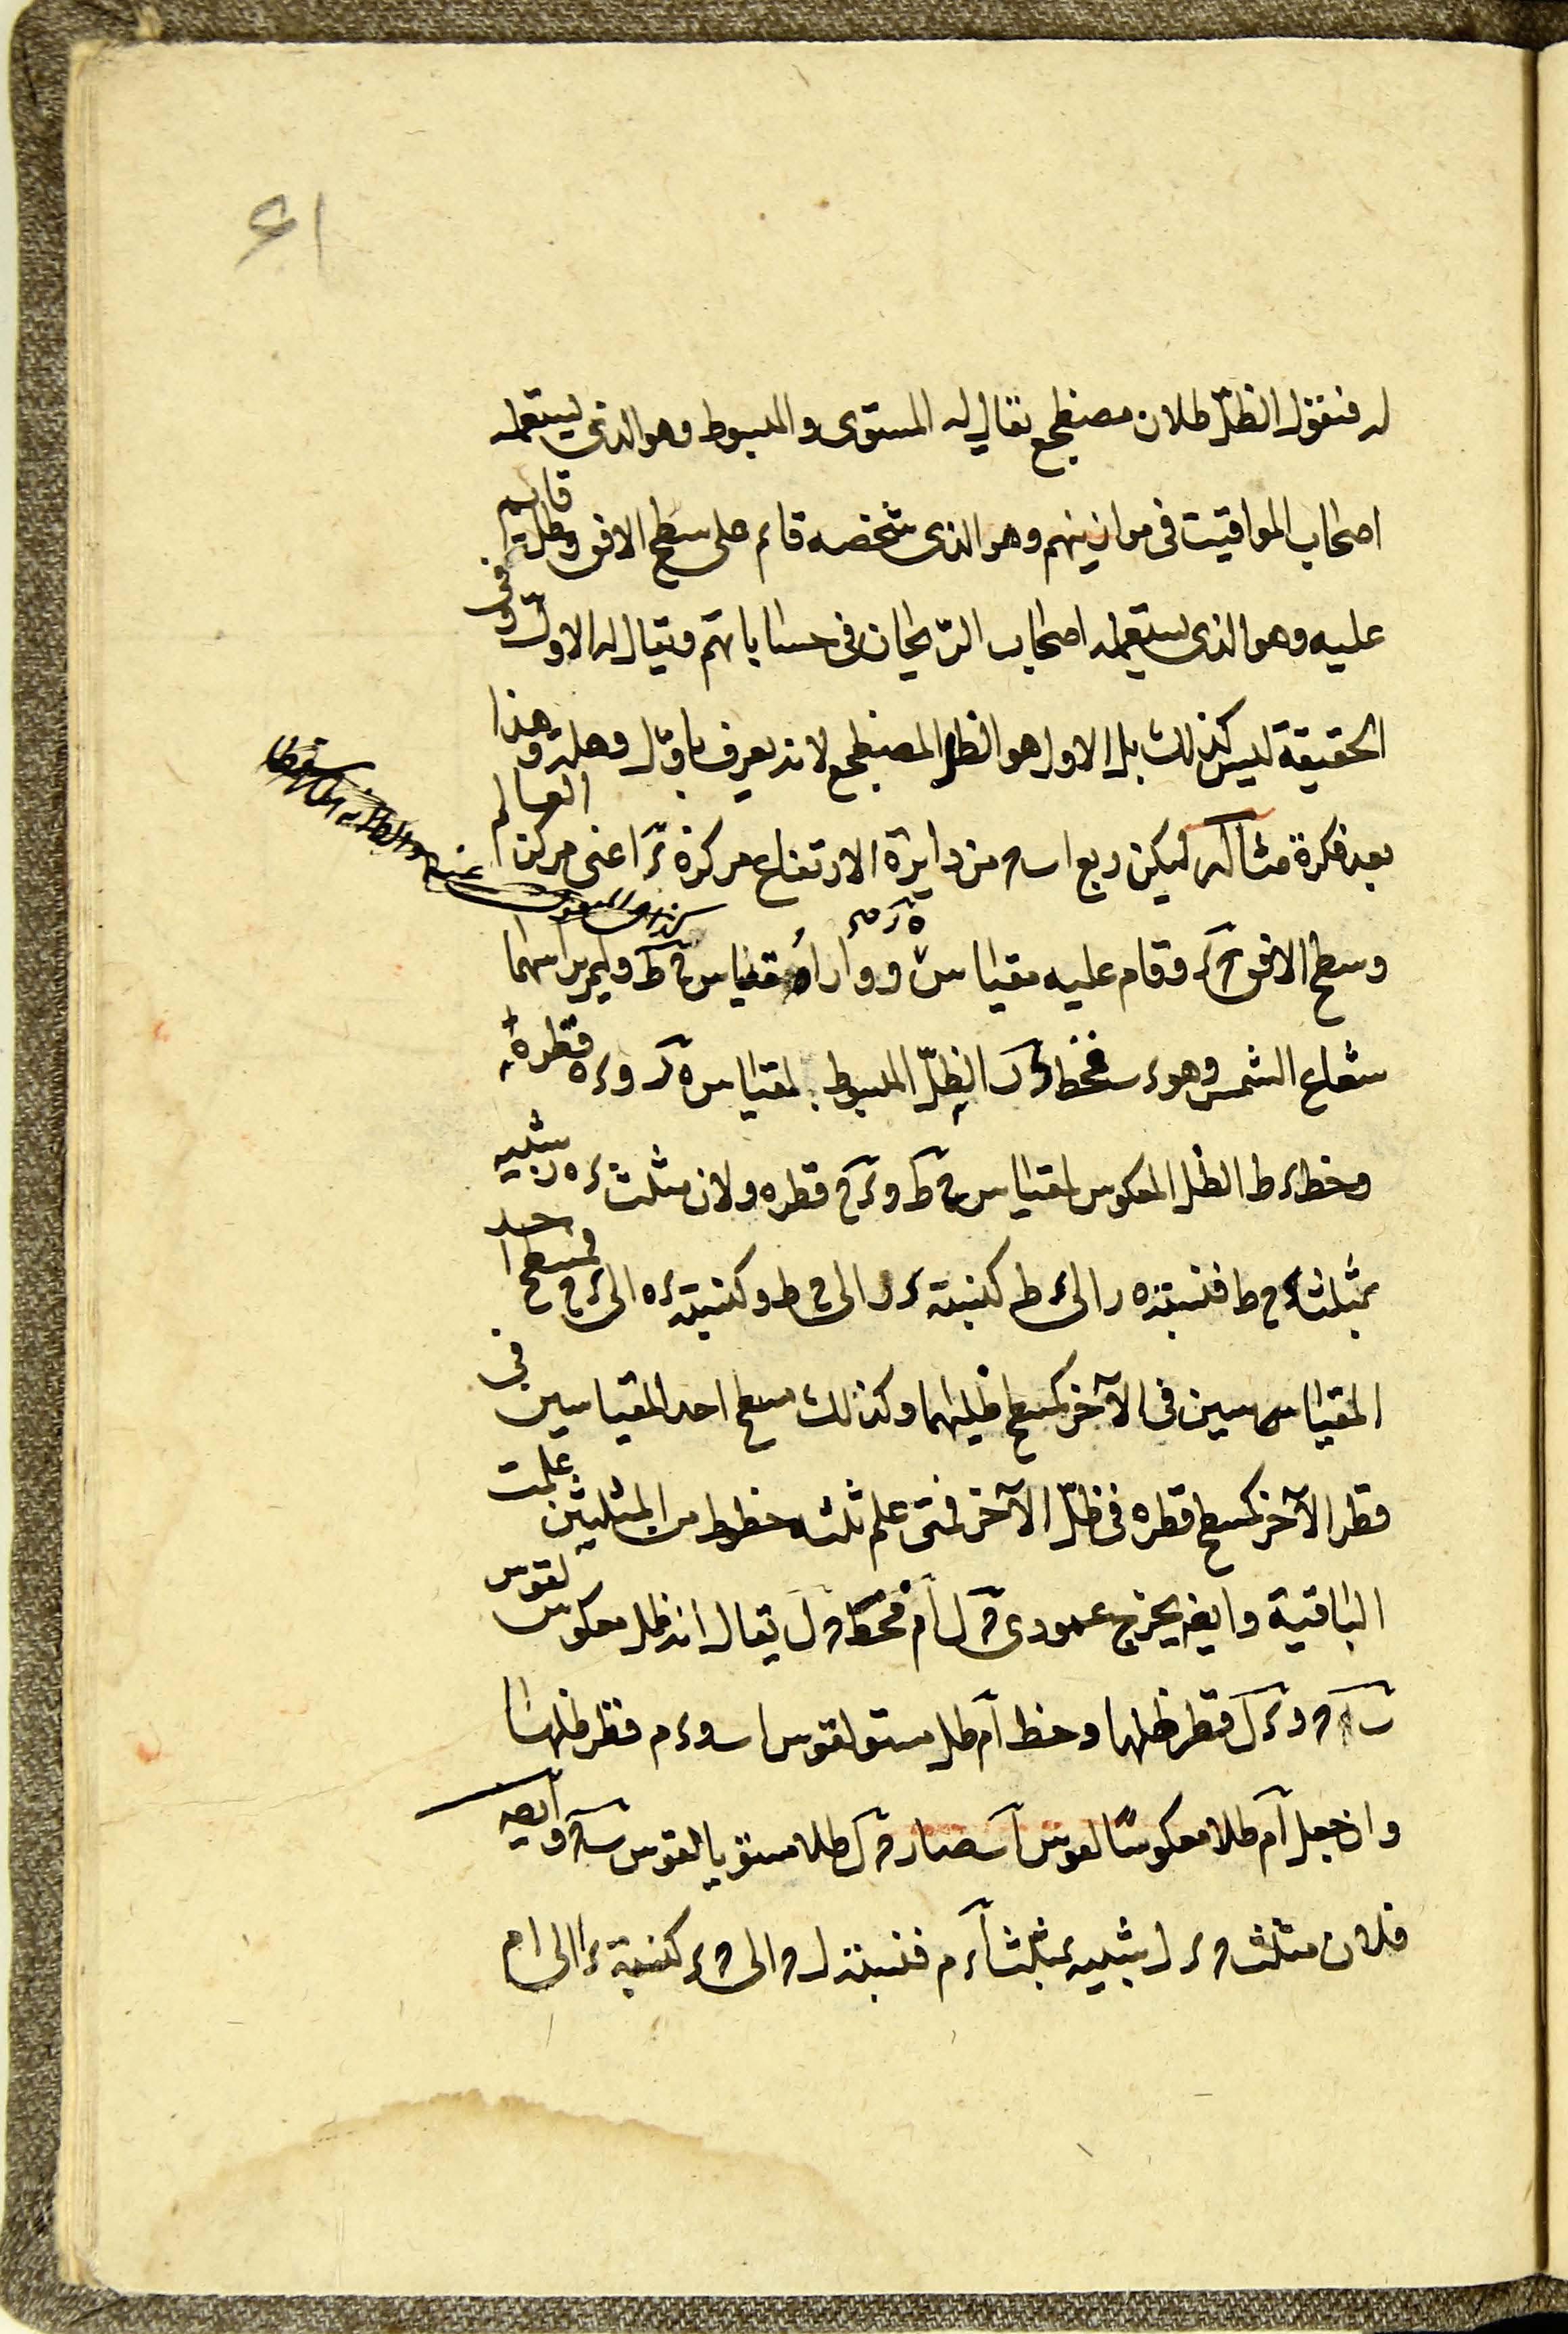 ٤١
له فنقول الظلّ ظلان مضطجع يقال له المستوى والمبسوط وهو الذى يستعمله
اصحاب المواقيت فى موازينهم وهو الذى شخصه قائم على سطح الافق وظل قايم
عليه وهو الذى يستعمله اصحاب الزيجات فى حساباتهم ويقال له الاول وفى
الحقيقة ليس كذلك بل الاول هو الظل المضطجع لانه يعرف باوّل وهلة وهذا
بعد فكرة مثاله ليكن ربع اب من دايرة الارتفاع مركزه ء اعنى مركز العالم
وسطح الافق وقام عليه مقياس مقياس ح ط وليمر براسهما
شعاع الشمس وهو فخط ء ر الظلّ المبسوط لمقياس ه ر و ء ه قطره
وخط ء ط الظل المعكوس لمقياس ح ط و ء ح قطره ولان مثلث ء ه ر شبيه
بمثلث ء ح ط فنسبة ه ر الى ء ط كنسبة ء ر الى ح ط وكنسبة ء ه الى ء ح فمسطح احد
المقياسين فى الآخر كمسطح ظليهما وكذلك مسطح احد المقياسين فى
قطر الآخر كمسطح قطره فى ظلّ الآخر فمتى علم ثلثه خطوط من المثلثين علمت
الباقية وايضا يخرج عمودى ل ام فخط ل يقال انه ظل معكوس لقوس
و ء ل قطر ظلها وخط ام ظل مستو لقوس اب و ء م قطر ظلها
وان جعل ام ظلا معكوسًا لقوس اب صار ل ظلا مستويا لقوس وايضا
فلان مثلث ء ل شبيه بمثلث ا ء م فنسبة ل الى ء كنسبة ء ا الى ا م